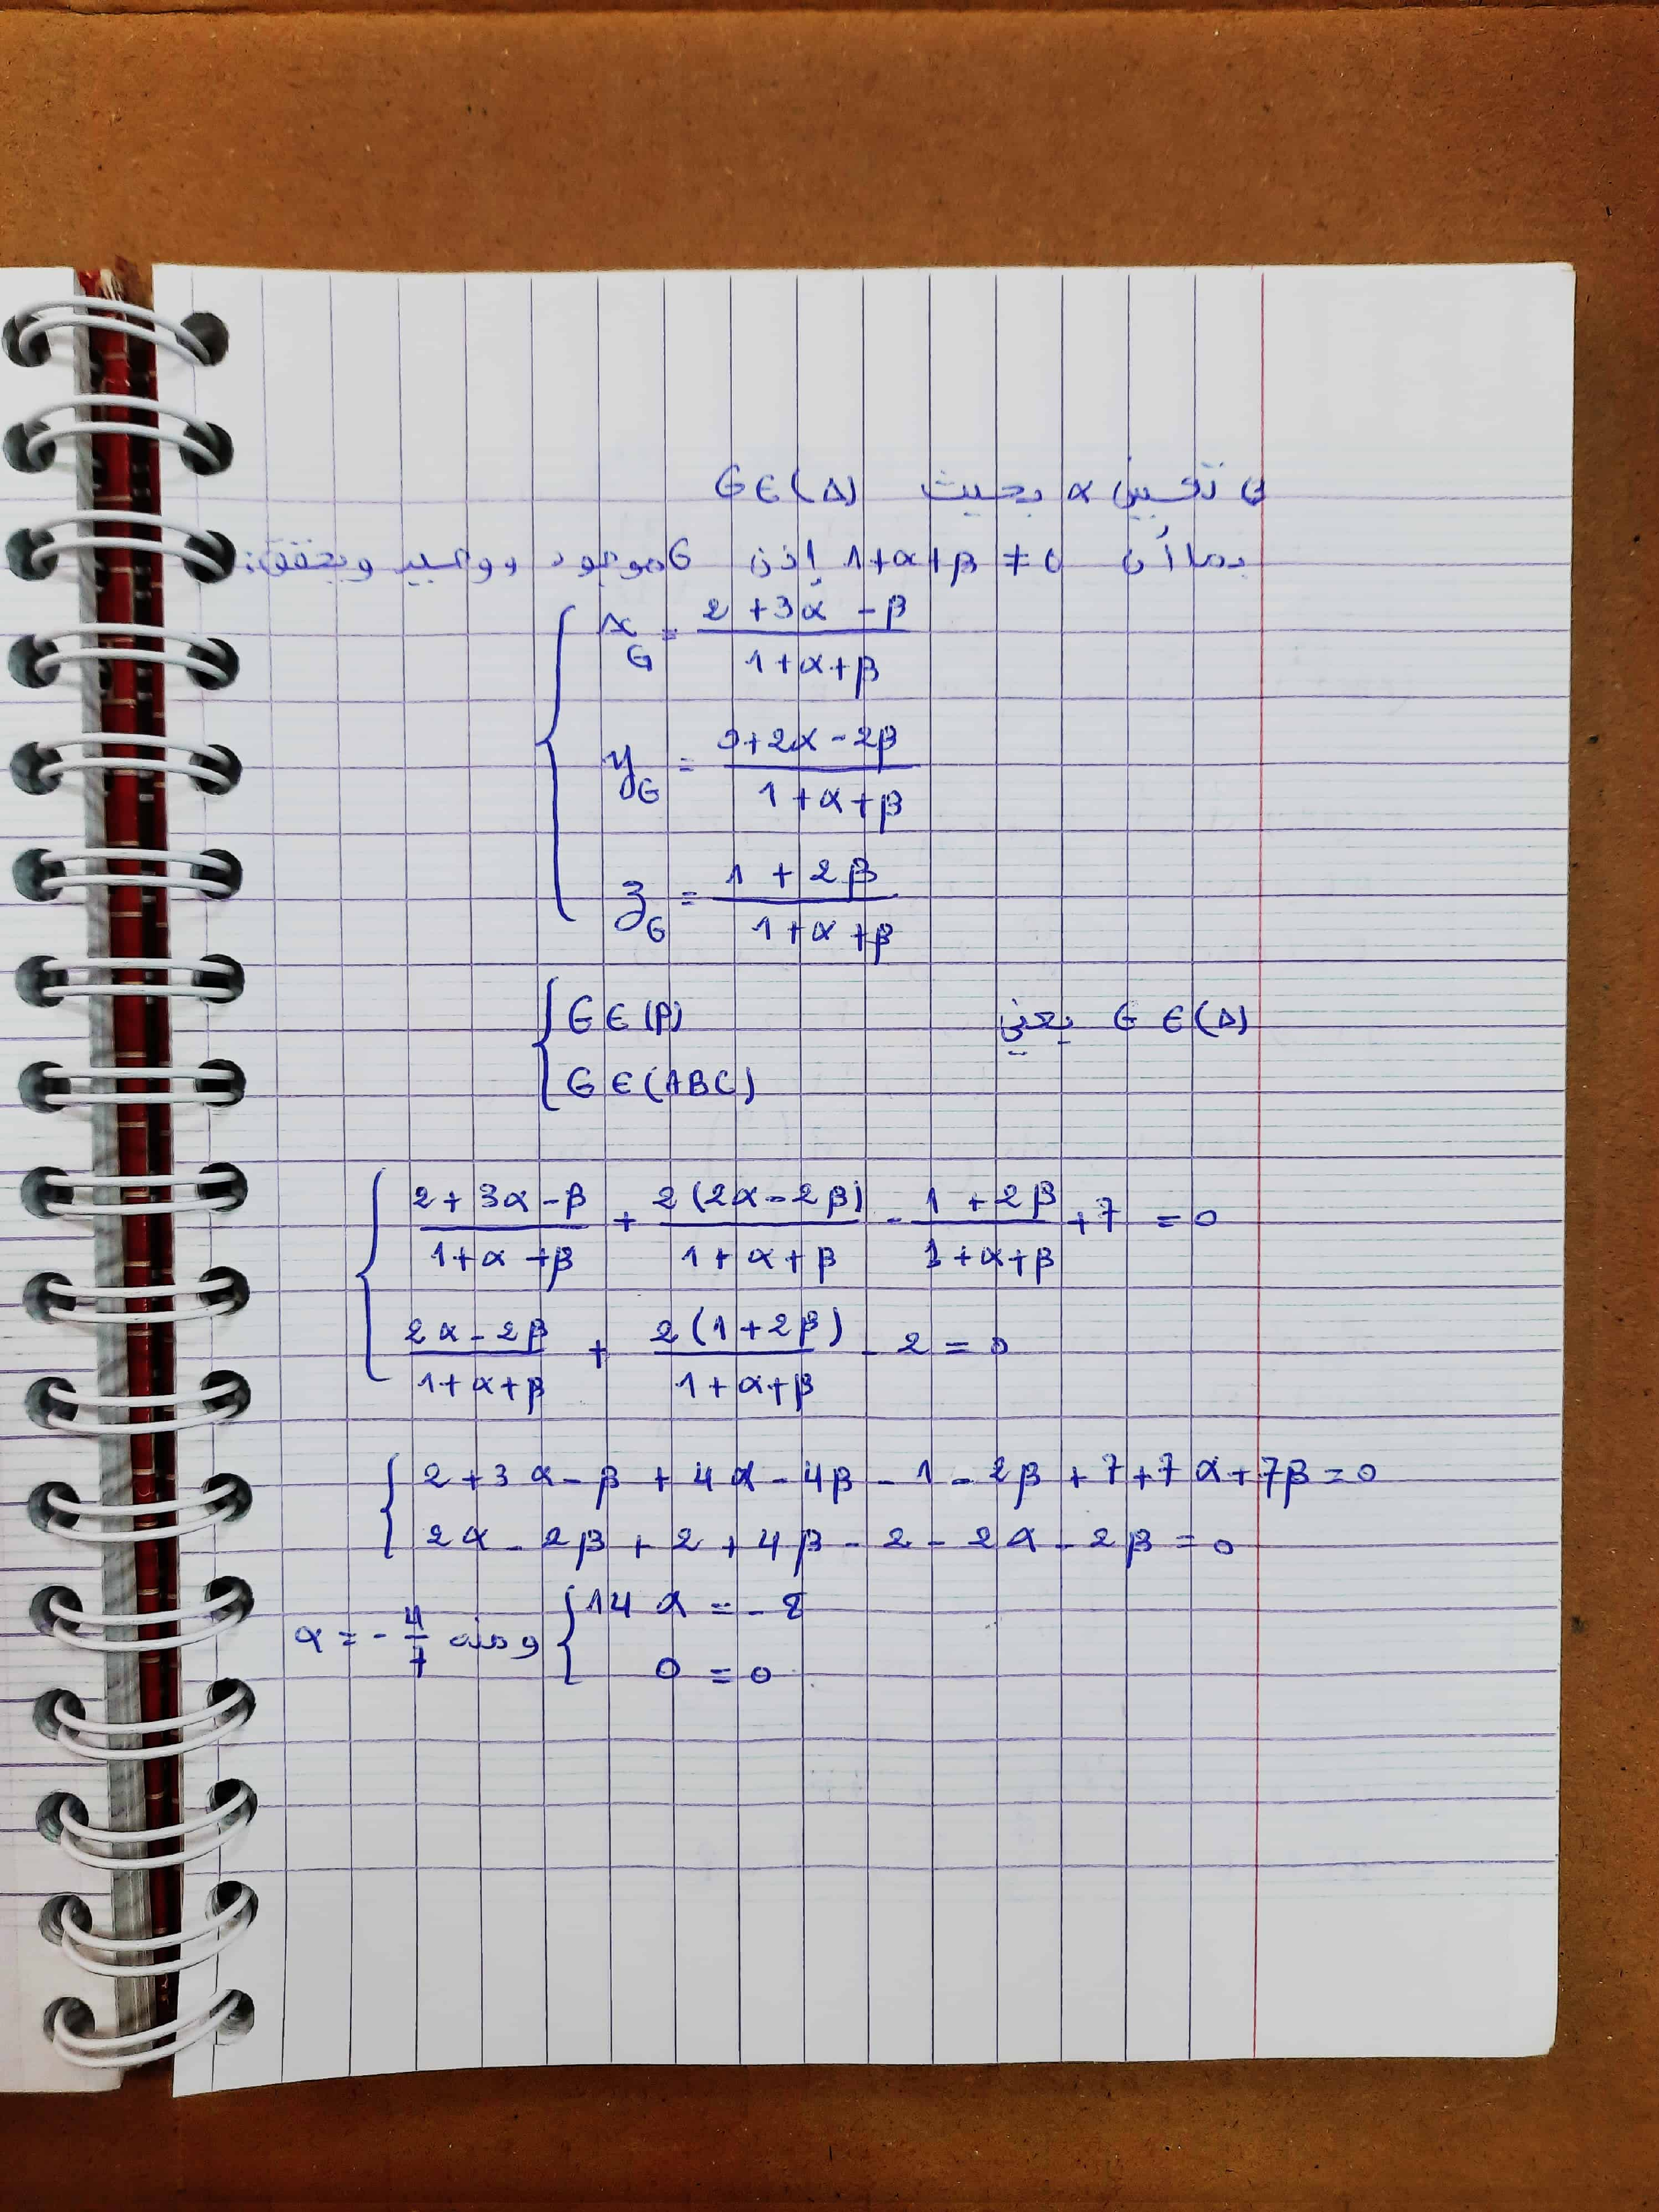 تعيين α بحيث G∈(Δ)
بما أن 1+α+β ≠ 0 إذن G موجود ووحيد ويحقق:
x_G = (2+3α-β)/(1+α+β)
y_G = (0+2α-2β)/(1+α+β)
z_G = (1+2β)/(1+α+β)
G∈(Δ) يعني { G∈(P)
G∈(ABC)
{ (2+3α-β)/(1+α+β) + 2(2α-2β)/(1+α+β) - (1+2β)/(1+α+β) + 7 = 0
(2α-2β)/(1+α+β) + 2(1+2β)/(1+α+β) - 2 = 0
{ 2+3α-β+4α-4β-1-2β+7+7α+7β=0
2α-2β+2+4β-2-2α-2β=0
{ 14α = -8
0 = 0
ومنه α = -4/7